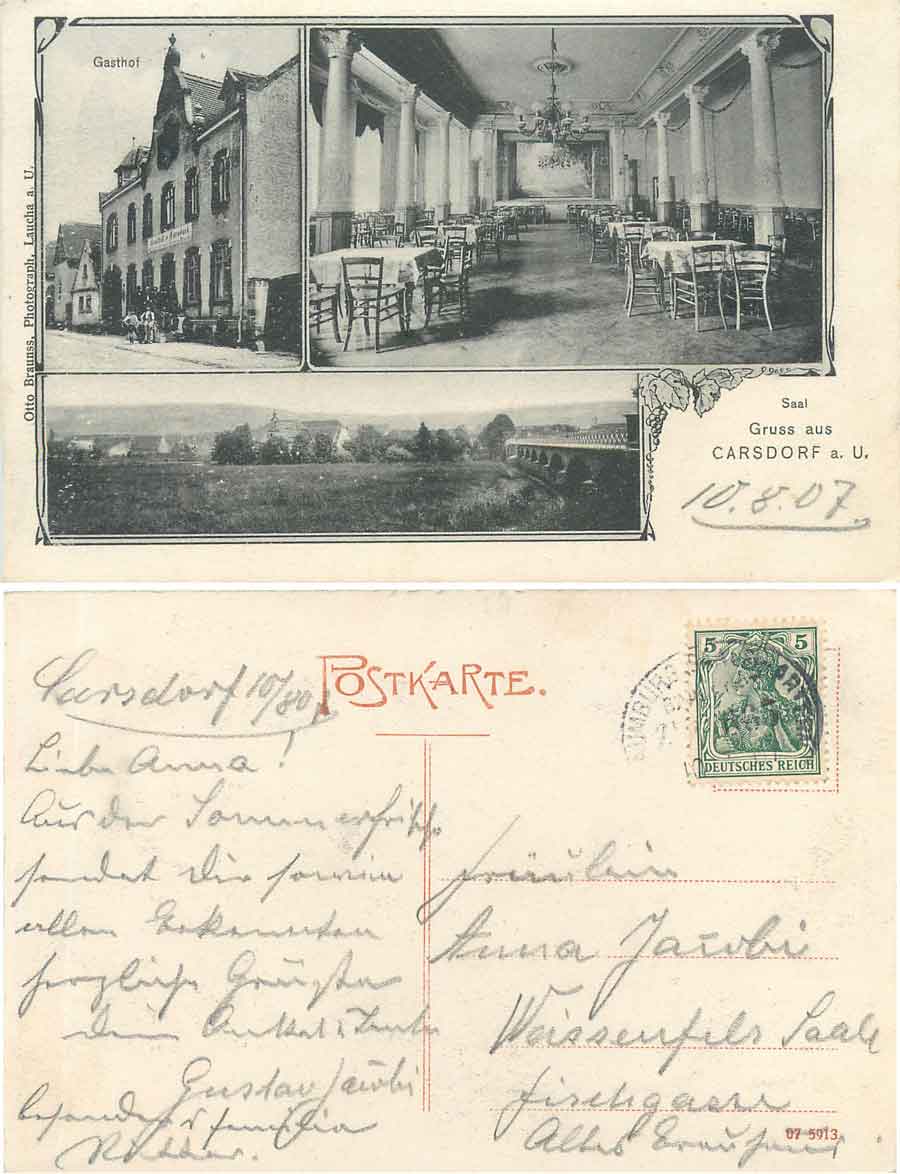 Gasthof
Otto Braunss, Photograph, Laucha a. U.
Saal
Gruss aus
CARSDORF a. U.
10.8.07
POSTKARTE.
5 5
DEUTSCHES REICH
Carsdorf 10/8 07
Liebe Anna!
Aus der Sommerfrische
sendet Dir sowie
allen Bekannten
herzliche Grüße
dein Onkel & Tante
Gustav Jacobi
besonders Familie
Fräulein
Anna Jacobi
Weissenfels Saale
Fischgasse
Altes Brauhaus
07 5913